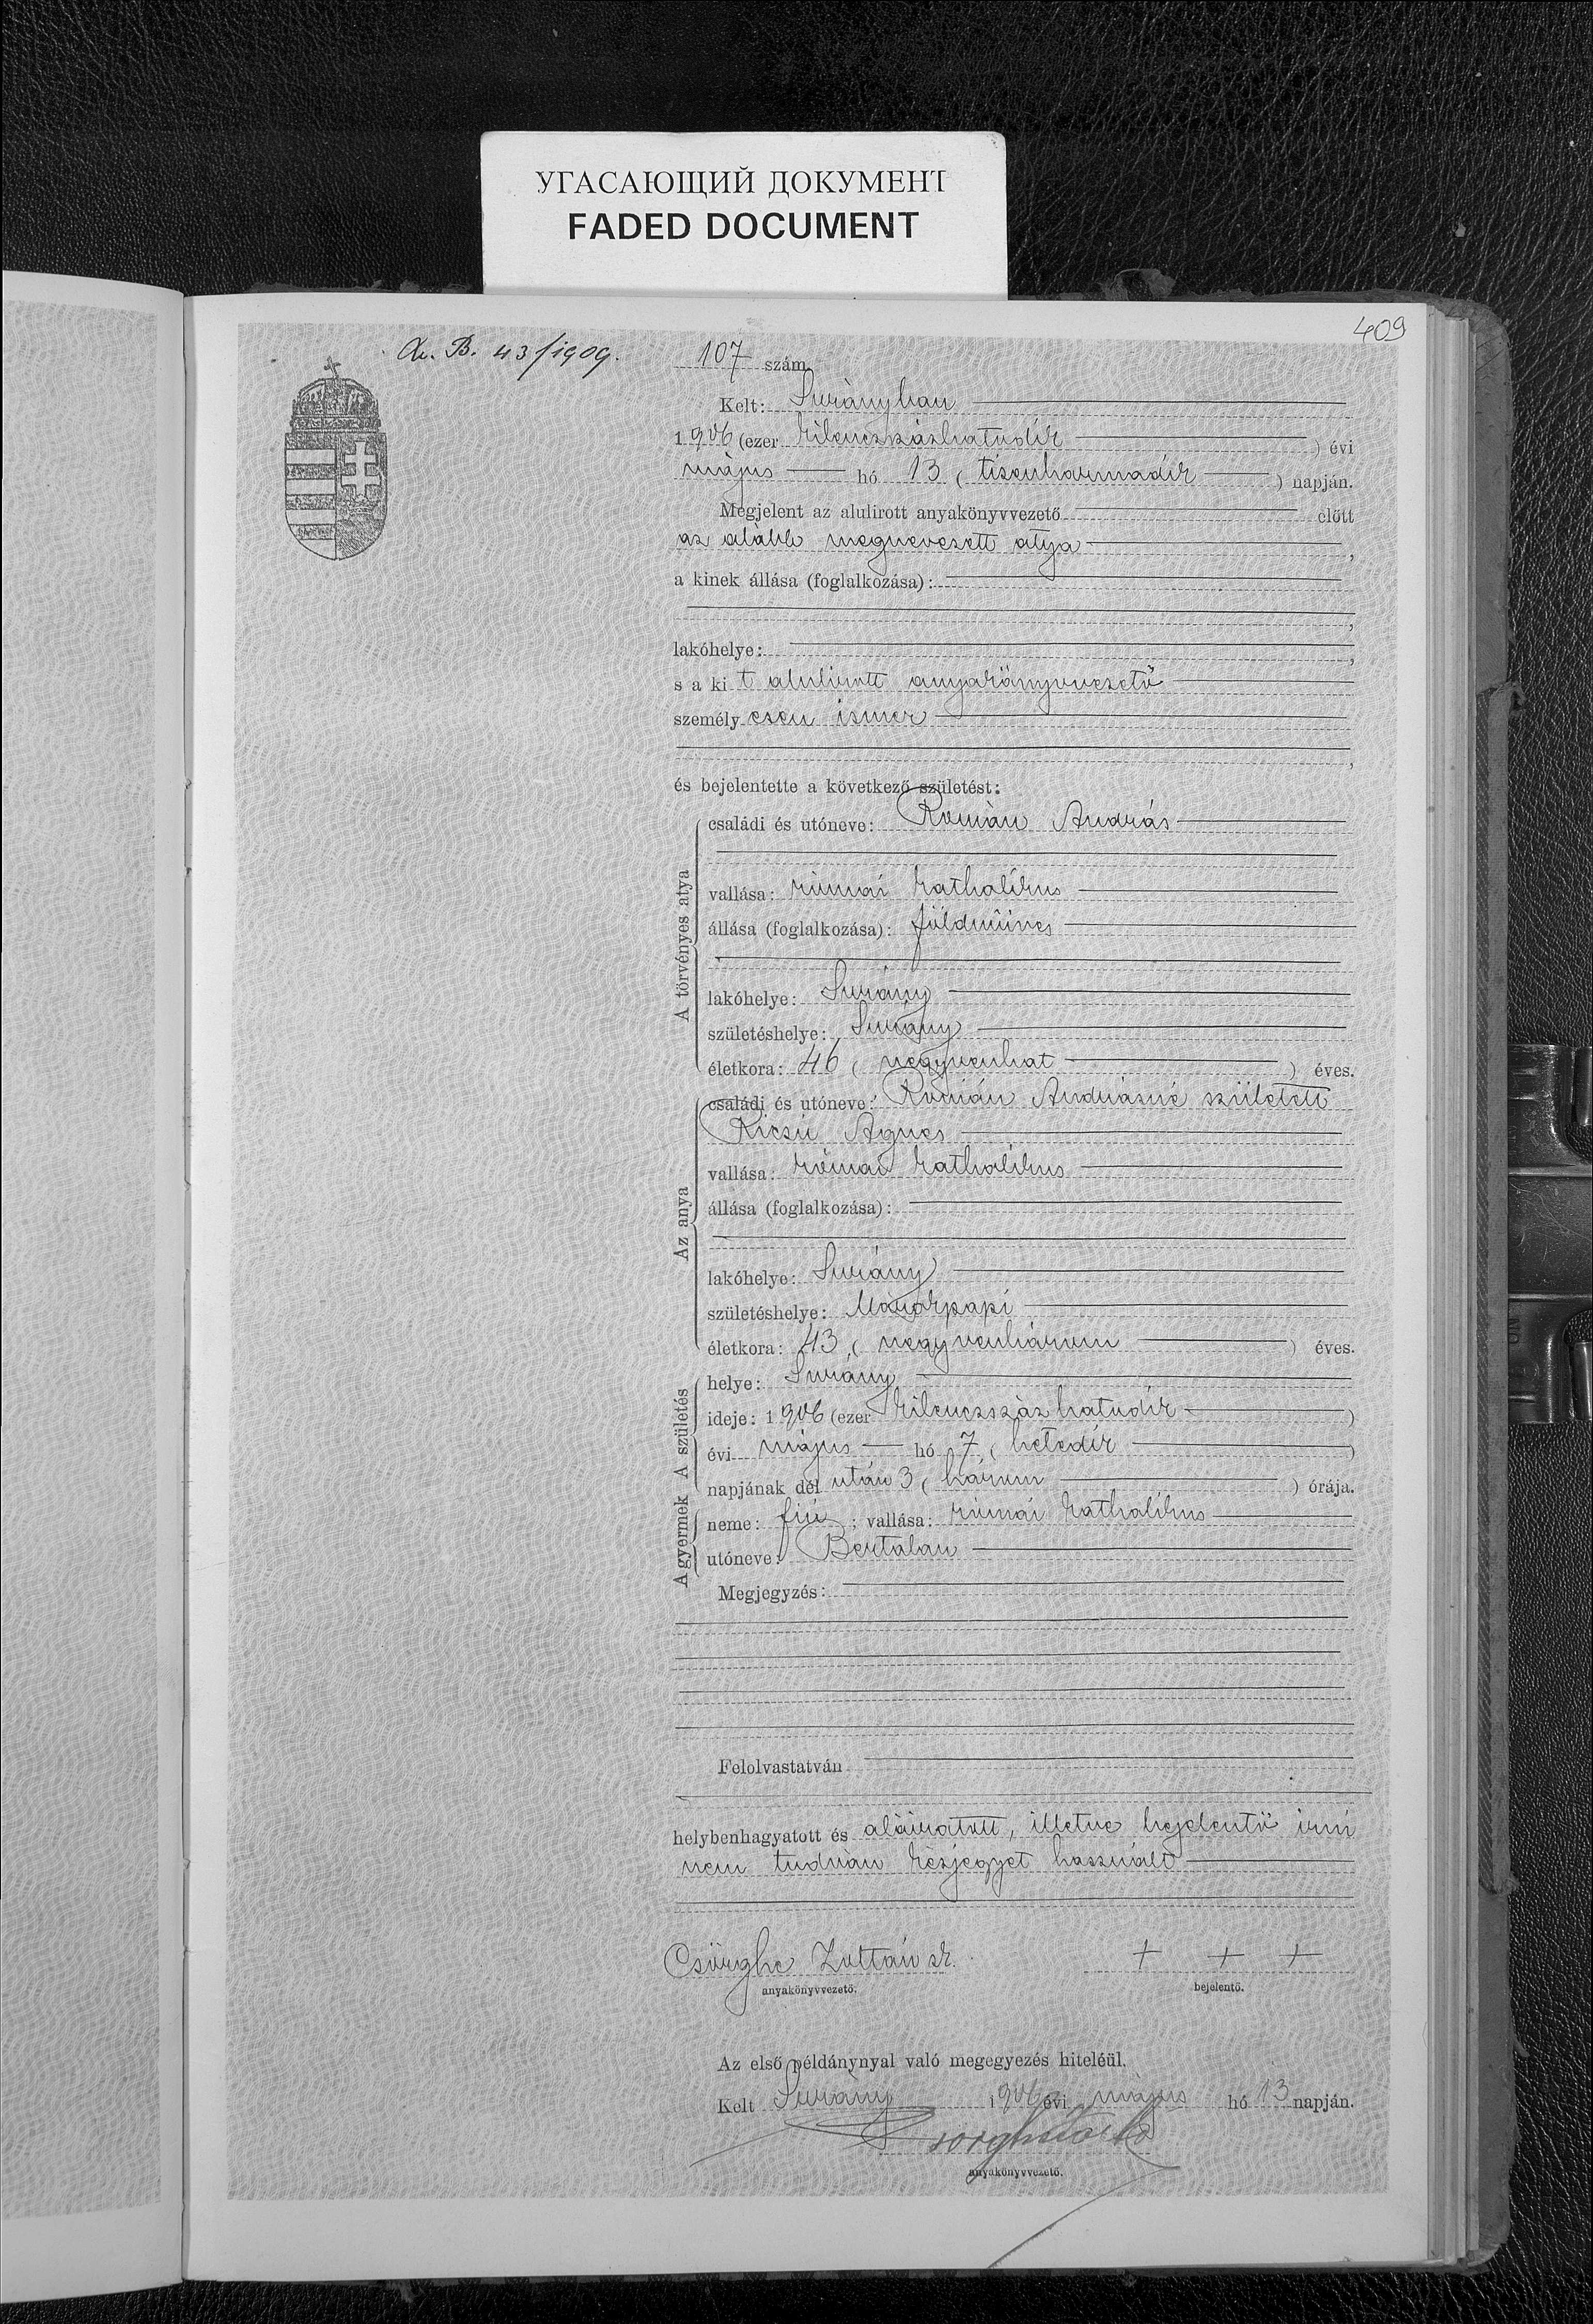 УГАСАЮЩИЙ ДОКУМЕНТ
FADED DOCUMENT
409
B. 43/1909.
107 szám.
Kelt: Surányban
1906 (ezer kilenczszázhatodik) évi
május hó 13 (tizenharmadik) napján.
Megjelent az alulirott anyakönyvvezető előtt
az alább megnevezett atya,
a kinek állása (foglalkozása):
lakóhelye:
s a kit alulirott anyakönyvvezető
személyesen ismer
és bejelentette a következő születést:
A törvényes atya
családi és utóneve: Román András
vallása: római katholikus
állása (foglalkozása): földmüves
lakóhelye: Surány
születéshelye: Surány
életkora: 46 (negyvenhat) éves.
Az anya
családi és utóneve: Román Andrásné született
Kicsi Ágnes
vallása: római katholikus
állása (foglalkozása):
lakóhelye: Surány
születéshelye: Márokpapi
életkora: 43 (negyvenhárom) éves.
A születés
helye: Surány
ideje: 1906 (ezer kilenczszáz hatodik)
évi május hó 7 (hetedik)
napjának dél után 3 (három) órája.
A gyermek
neme: fiú; vallása: római katholikus
utóneve: Bertalan
Megjegyzés:
Felolvastatván
helybenhagyatott és aláiratott, illetve bejelentő irni
nem tudván kézjegyet használt
Csörghe Zoltán sk. + + +
anyakönyvvezető. bejelentő.
Az első példánynyal való megegyezés hiteléül.
Kelt Surány 1906 évi május hó 13 napján.
anyakönyvvezető.